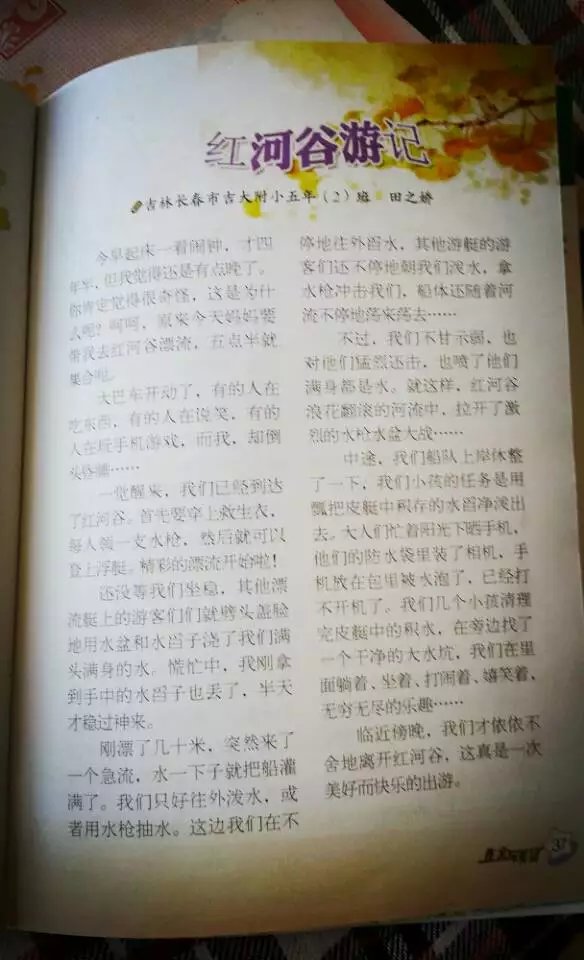 红河谷游记
吉林长春市吉大附小五年（2）班 田之娇
今早起床一看闹钟，才四
年早，但我觉得还是有点晚了。
你肯定觉得很奇怪，这是为什
么呢？呵呵，原来今天妈妈要
带我去红河谷漂流，五点半就
集合啦。
大巴车开动了，有的人在
吃东西，有的人在说笑，有的
人在玩手机游戏，而我，却倒
头昏睡……
一觉醒来，我们已经到达
了红河谷。首先要穿上救生衣，
每人领一支水枪，然后就可以
登上浮艇。精彩的漂流开始啦！
还没等我们坐稳，其他漂
流艇上的游客们们就劈头盖脸
地用水盆和水舀子浇了我们满
头满身的水。慌忙中，我刚拿
到手中的水舀子也丢了，半天
才稳过神来。
刚漂了几十米，突然来了
一个急流，水一下子就把船灌
满了。我们只好往外泼水，或
者用水枪抽水。这边我们在不
停地往外舀水，其他游艇的游
客们还不停地朝我们泼水，拿
水枪冲击我们，船体还随着河
流不停地荡来荡去……
不过，我们不甘示弱，也
对他们猛烈还击，也喷了他们
满身都是水。就这样，红河谷
浪花翻滚的河流中，拉开了激
烈的水枪水盆大战……
中途，我们船队上岸休整
了一下，我们小孩的任务是用
瓢把皮艇中积存的水舀净泼出
去。大人们忙着阳光下晒手机，
他们的防水袋里装了相机，手
机放在包里被水泡了，已经打
不开机了。我们几个小孩清理
完皮艇中的积水，在旁边找了
一个干净的大水坑，我们在里
面躺着、坐着、打闹着、嬉笑着，
无穷无尽的乐趣……
临近傍晚，我们才依依不
舍地离开红河谷，这真是一次
美好而快乐的出游。
37